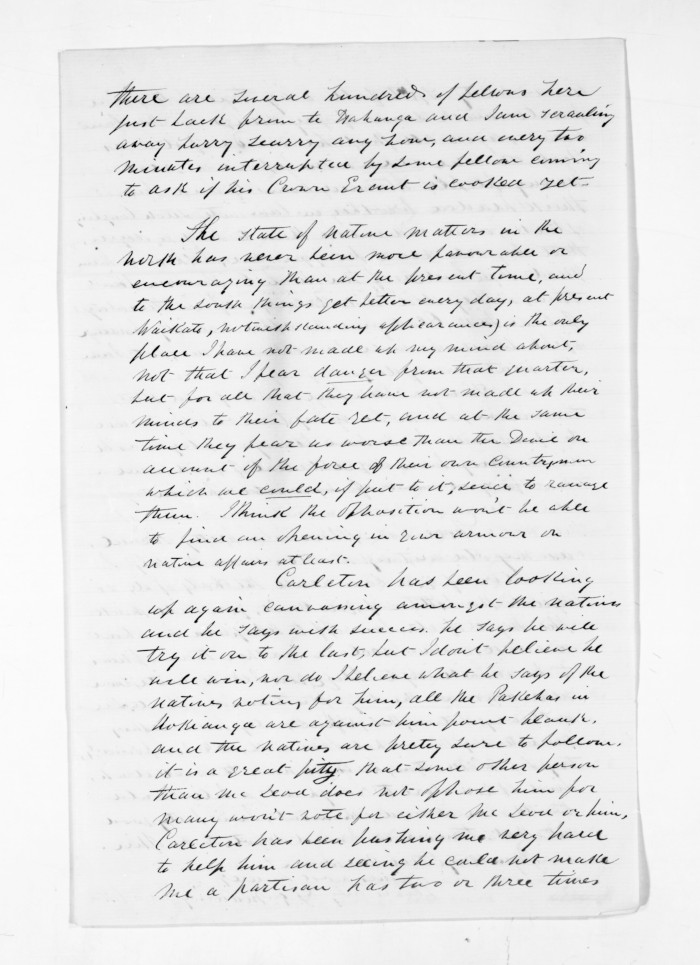 there are several hundreds of fellows here
just back from te Wahanga and I am scrawling
away hurry scurry any how, and every two
minutes interrupted by some fellow coming
to ask if his Crown Grant is cooked yet.
The state of native matters in the
north has never been more favourable or
encouraging than at the present time, and
to the south things get better every day, at present
Waikato, notwithstanding appearances, is the only
place I have not made up my mind about,
not that I fear danger from that quarter,
but for all that they have not made up their
minds to their fate yet, and at the same
time they fear us worse than the Devil on
account of the force of their own Countrymen
which we could, if put to it, seduce to ravage
them. I think the opposition won't be able
to find an opening in your armour on
native affairs at least.
Carleton has been looking
up again canvassing amongst the natives
and he says with success. he says he will
try it on to the last, but I don't believe he
will win, nor do I believe what he says of the
natives voting for him, all the Pakehas in
Hokianga are against him point blank,
and the natives are pretty sure to follow.
it is a great pity that some other person
than McLeod does not oppose him for
many won't vote for either McLeod or him,
Carleton has been pushing me very hard
to help him and seeing he could not make
me a partisan has two or three times